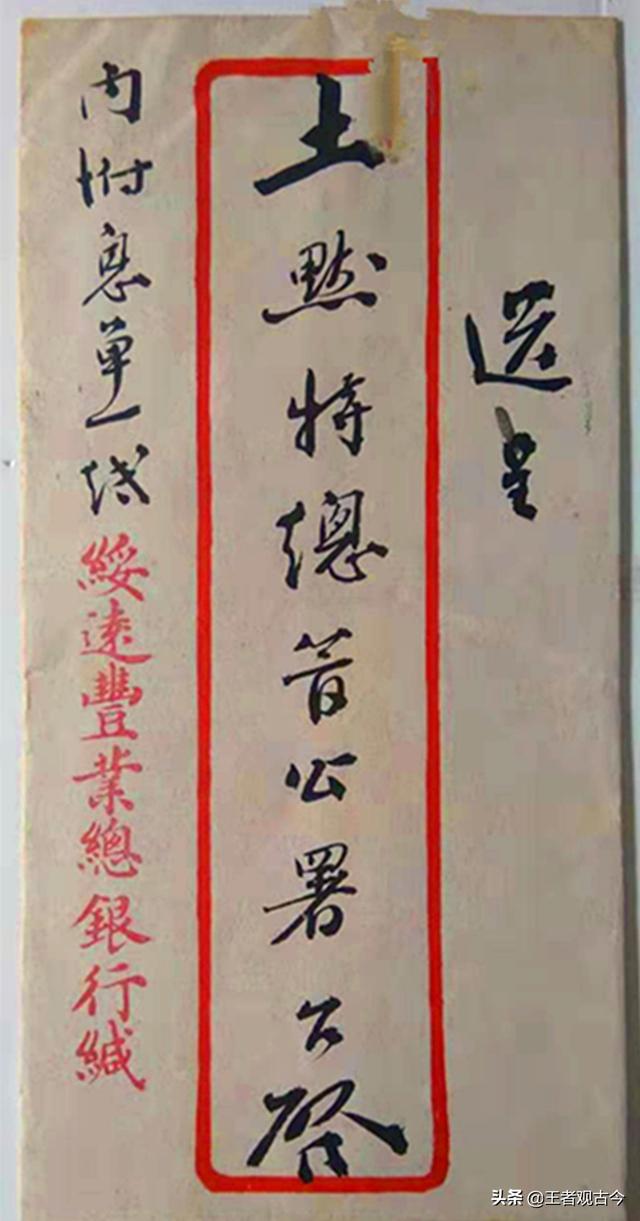 送呈
土默特總管公署公啓
内附息单一纸 綏遠豐業總銀行緘
头条 @王者观古今